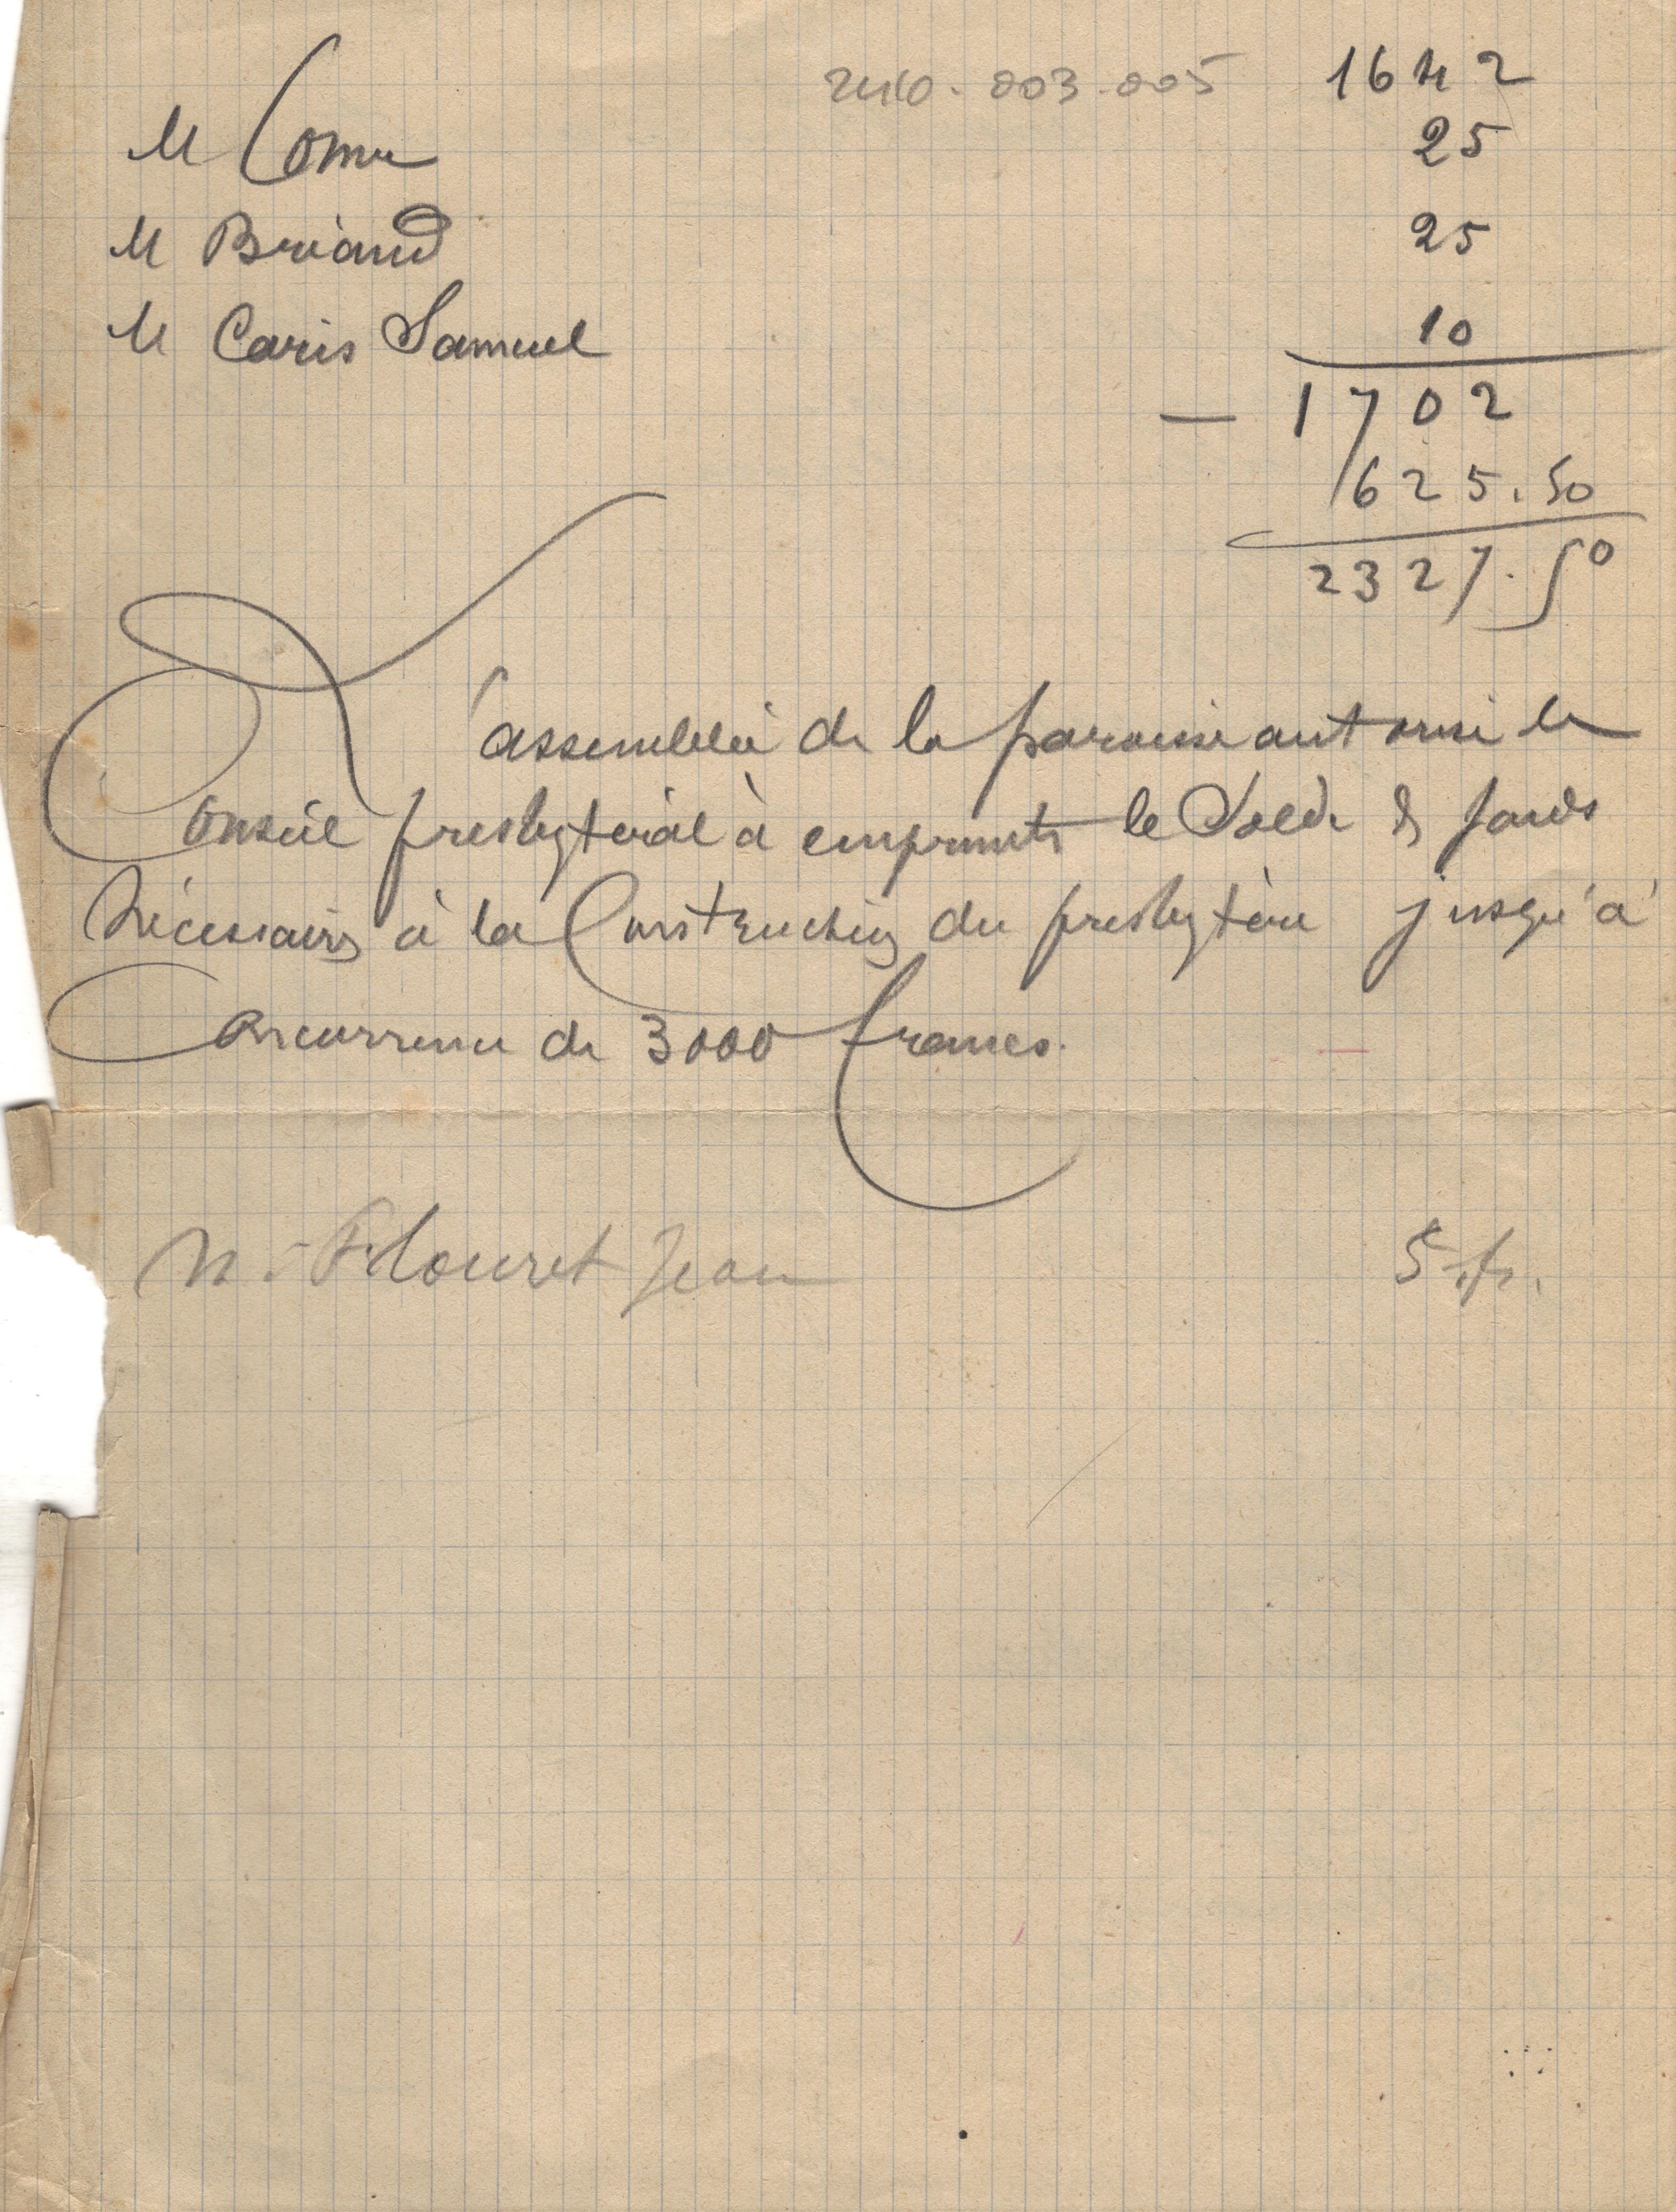 2410.003.005 1642
M Comu 25
M Briand 25
M Caris Samuel 10
— 1702
625.50
2327.50
L'assemblée de la paroisse autorise le
Conseil presbytéral à emprunter le Solde des fonds
Nécessaires à la Construction du presbytère jusqu'à
Concurrence de 3000 francs.
M. Flouret Jean 5 fr.